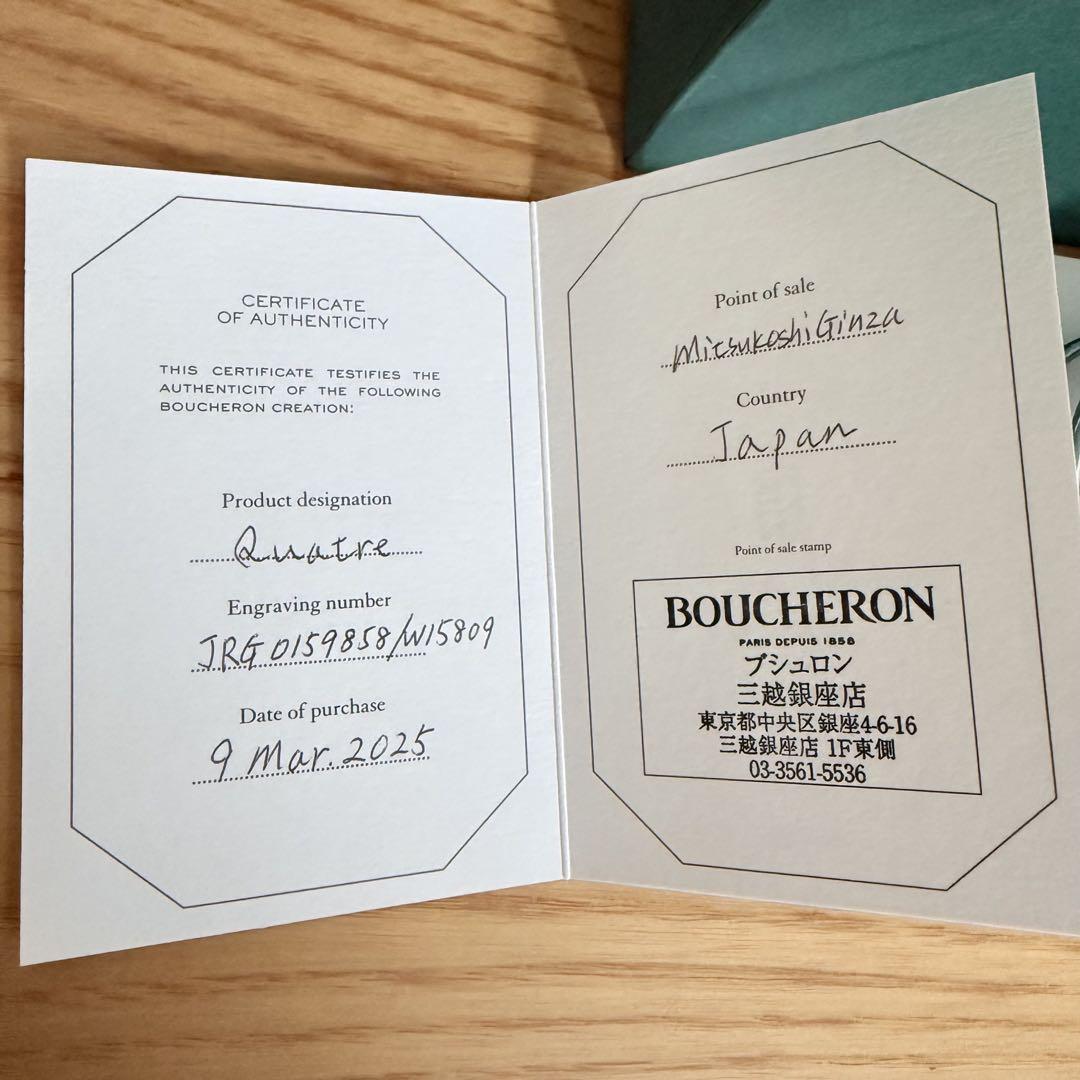 CERTIFICATE
OF AUTHENTICITY
THIS CERTIFICATE TESTIFIES THE
AUTHENTICITY OF THE FOLLOWING
BOUCHERON CREATION:
Product designation
Quatre
Engraving number
JRG0159858/W15809
Date of purchase
9 Mar. 2025
Point of sale
Mitsukoshi Ginza
Country
Japan
Point of sale stamp
BOUCHERON
PARIS DEPUIS 1858
ブシュロン
三越銀座店
東京都中央区銀座4-6-16
三越銀座店 1F東側
03-3561-5536